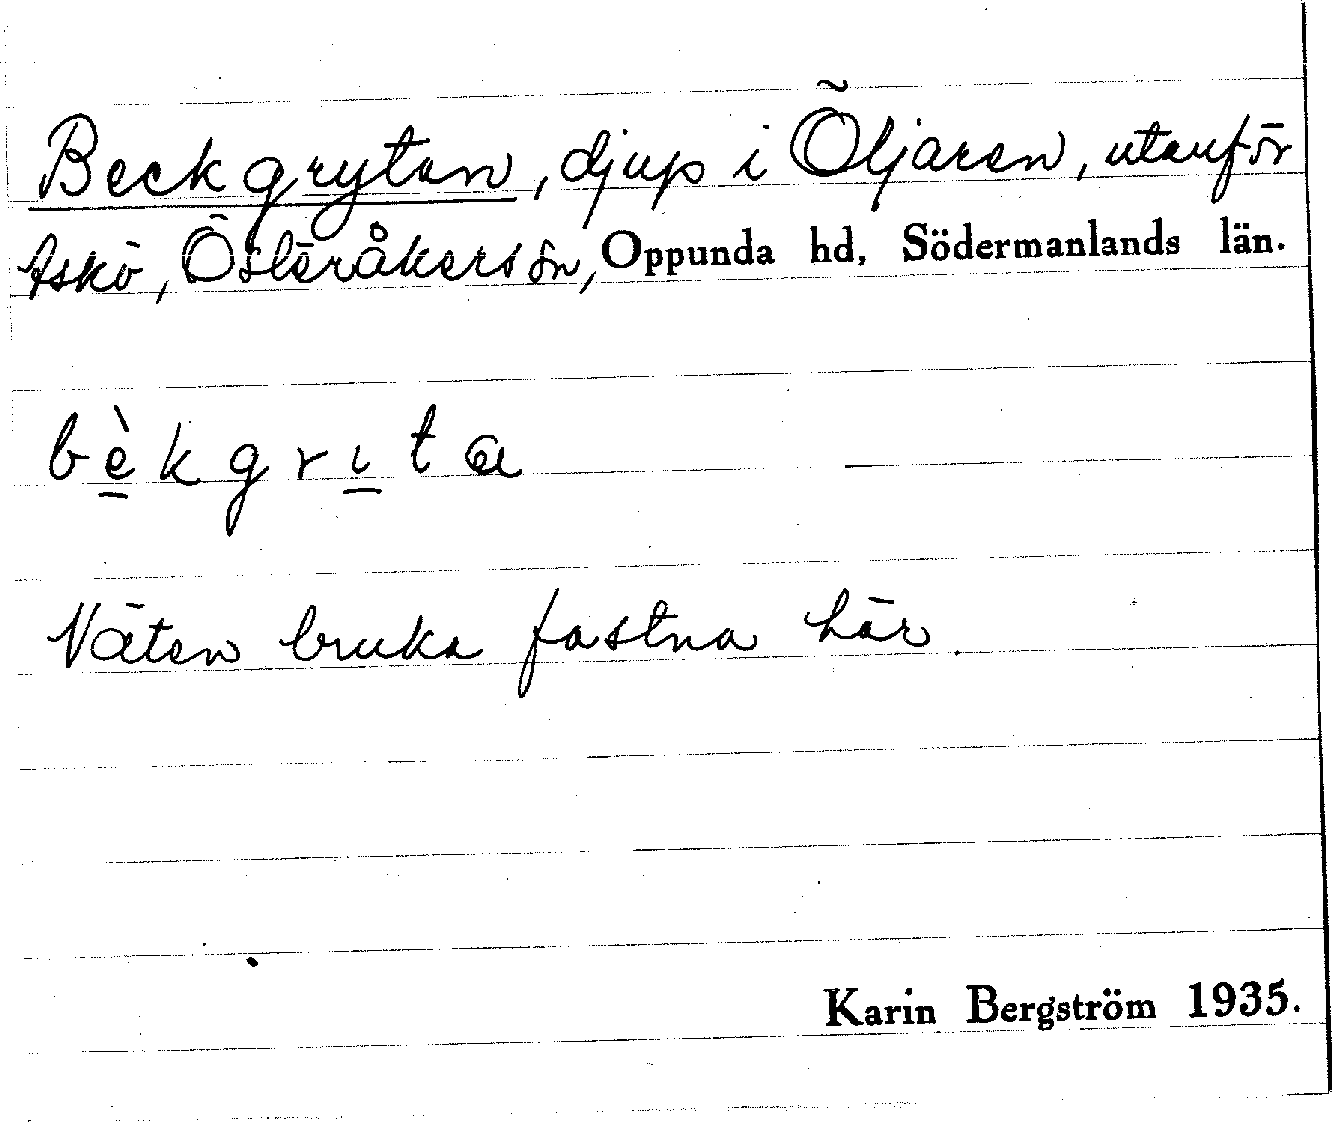 Beckgrytan, djup i Öljaren, utanför
Askö, Österåkers sn, Oppunda hd, Södermanlands län.
bèkgrıta
Näten bruka fastna här.
Karin Bergström 1935.